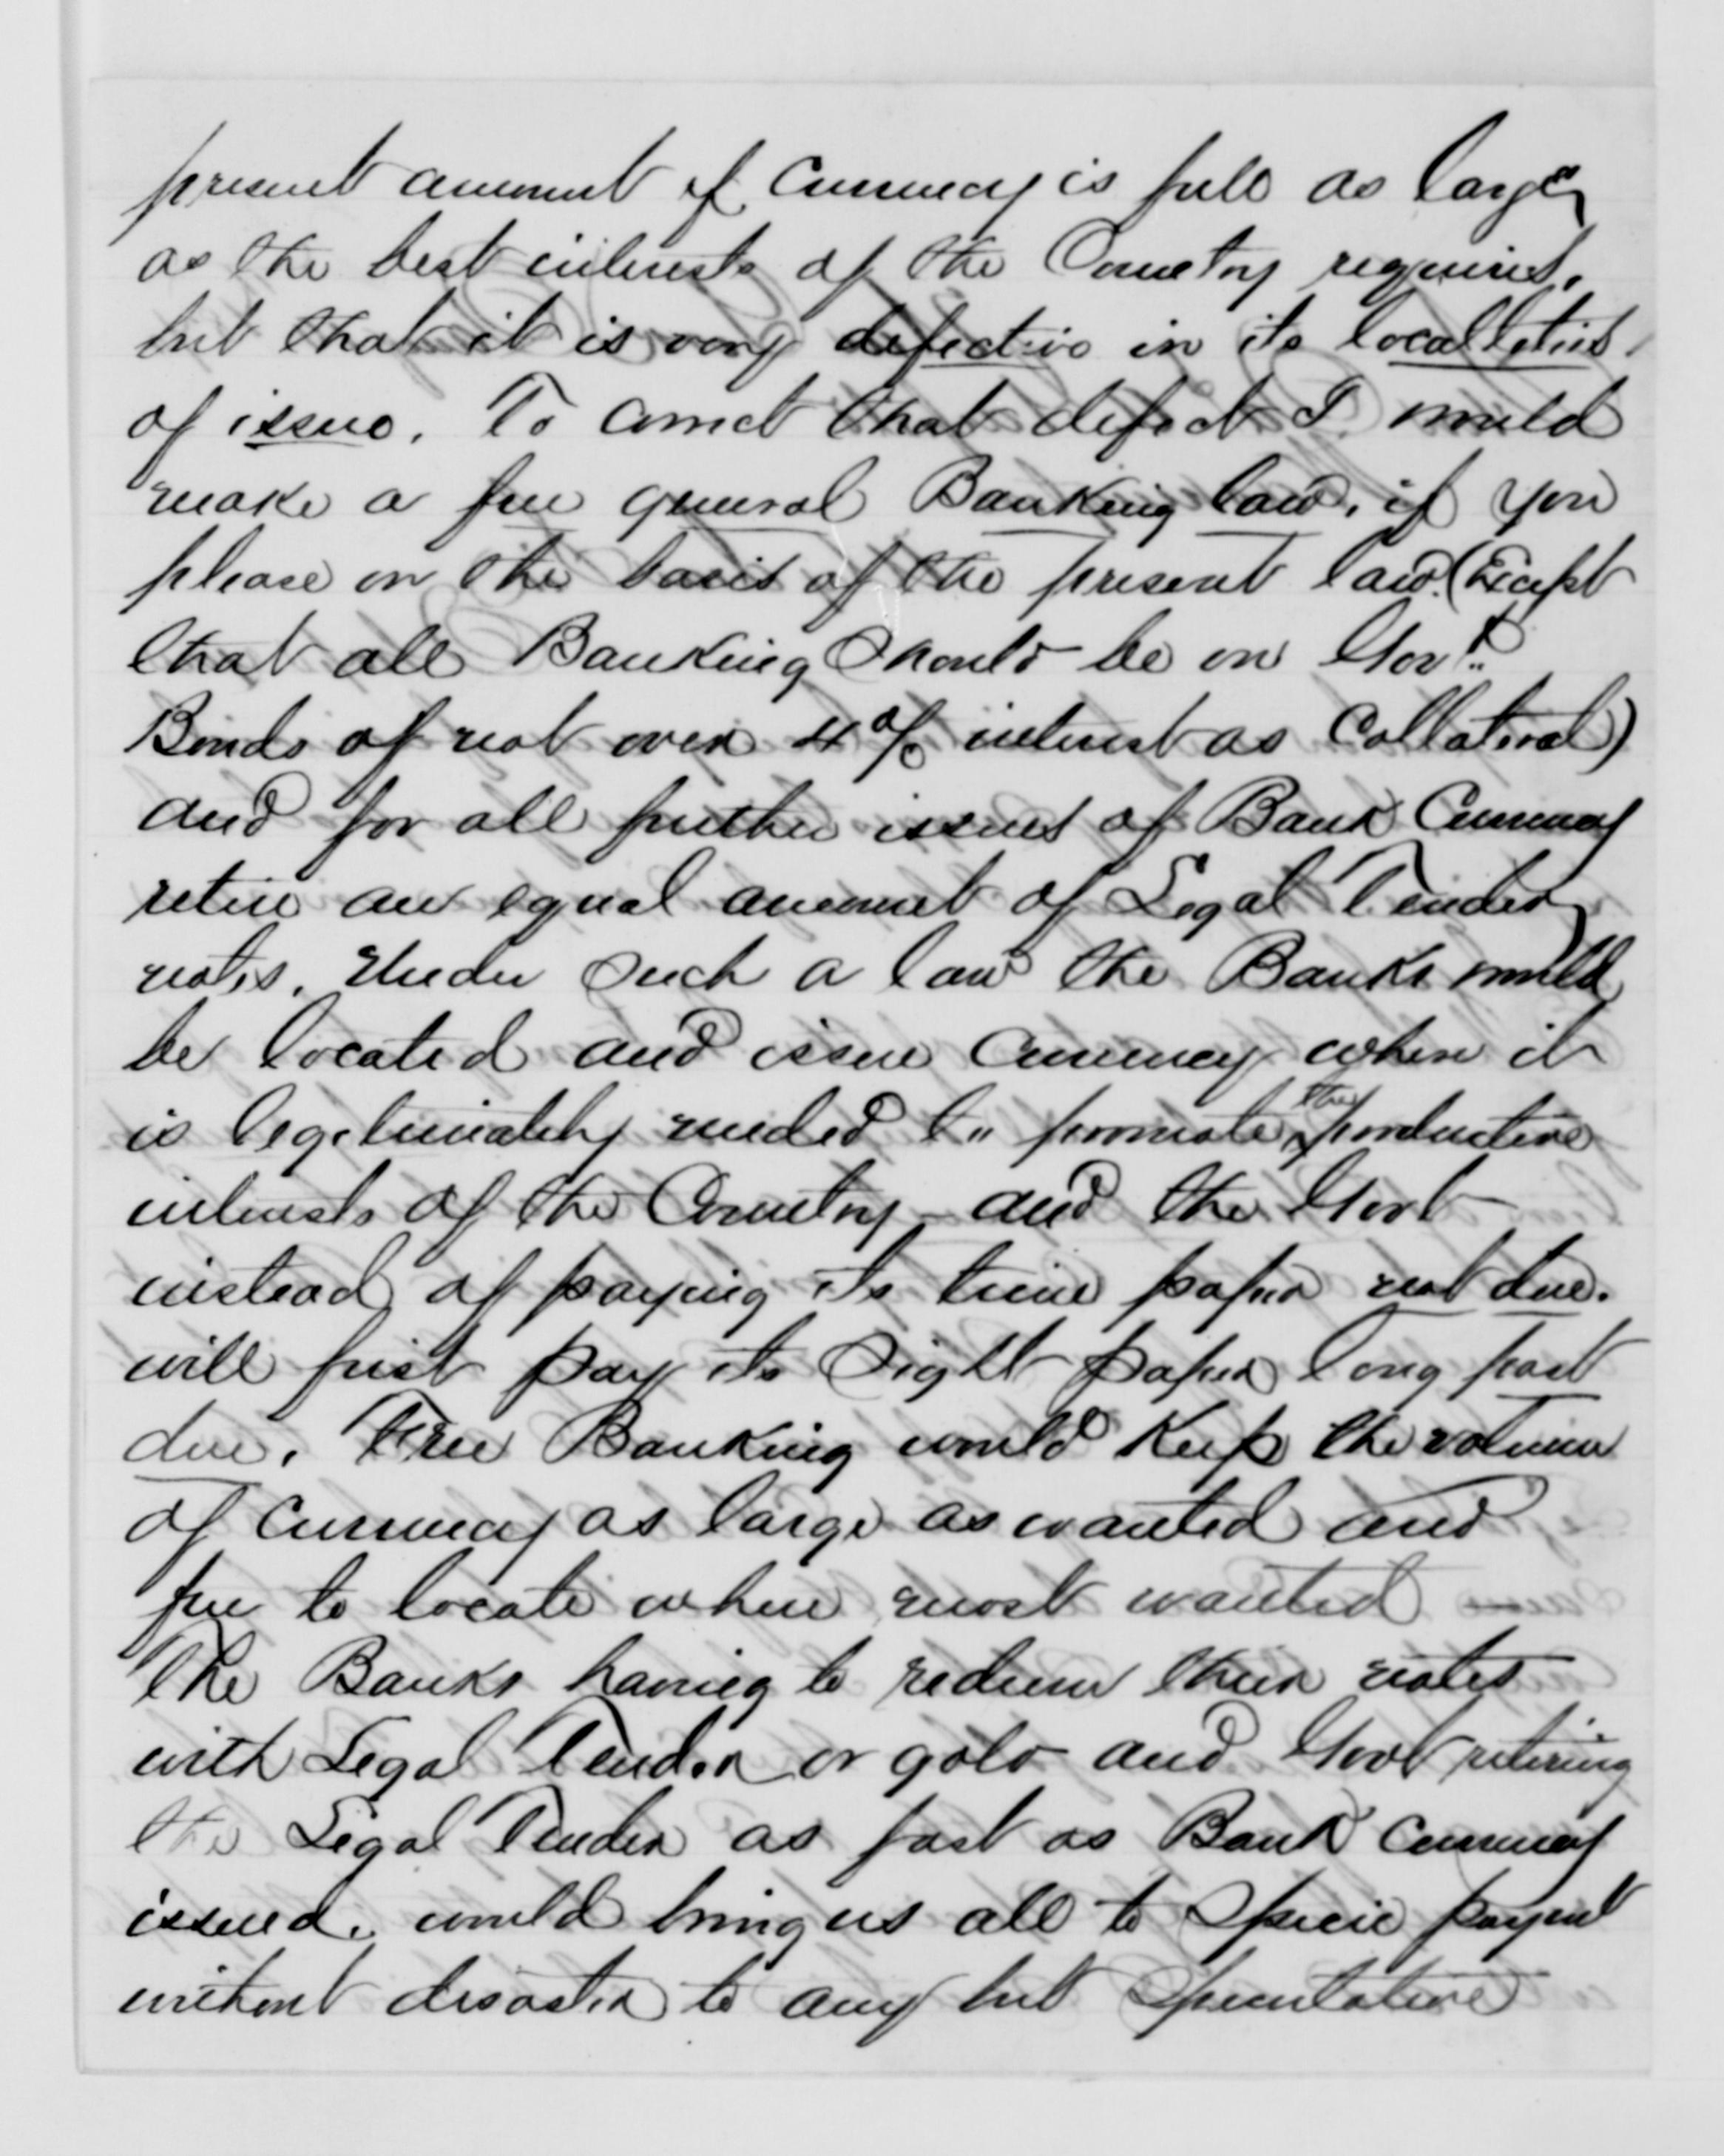 present amount of Currency is full as large
as the best interests of the Country requires,
but that it is very defective in its localities
of issue. To correct that defect I would
make a free general Banking law, if you
please on the basis of the present law (Except
that all Banking Should be on Govt.
Bonds of not over 4 % interest as Collateral)
and for all further issues of Bank Currency
retire an equal amount of Legal Tender
notes. Under Such a law the Banks would
be located and issue Currency where it
is legetimately needed to promote the productive
interests of the Country - and the Govt
instead of paying its time paper not due.
will first pay its Sight paper long past
due. Free Banking would Keep the volume
of Currency as large as wanted and
free to locate where most wanted
The Banks having to redeem their notes
with Legal Tender or gold and Govt retiring
the Legal Tender as fast as Bank Currency
issued. would bring us all to Specie payment
without disaster to any but Speculative